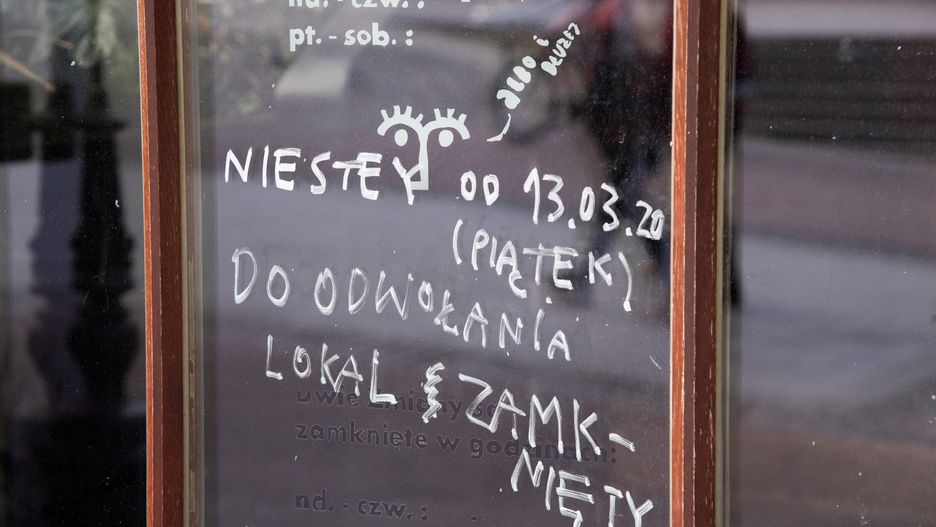 nd. - czw. : -
pt. - sob. :
albo i
dłużej
NIESTETY OD 13.03.20
(PIĄTEK)
DO ODWOŁANIA
LOKAL ZAMK-
NIĘTY
Dwie Zmiany są
zamknięte w godzinach:
nd. - czw. : -